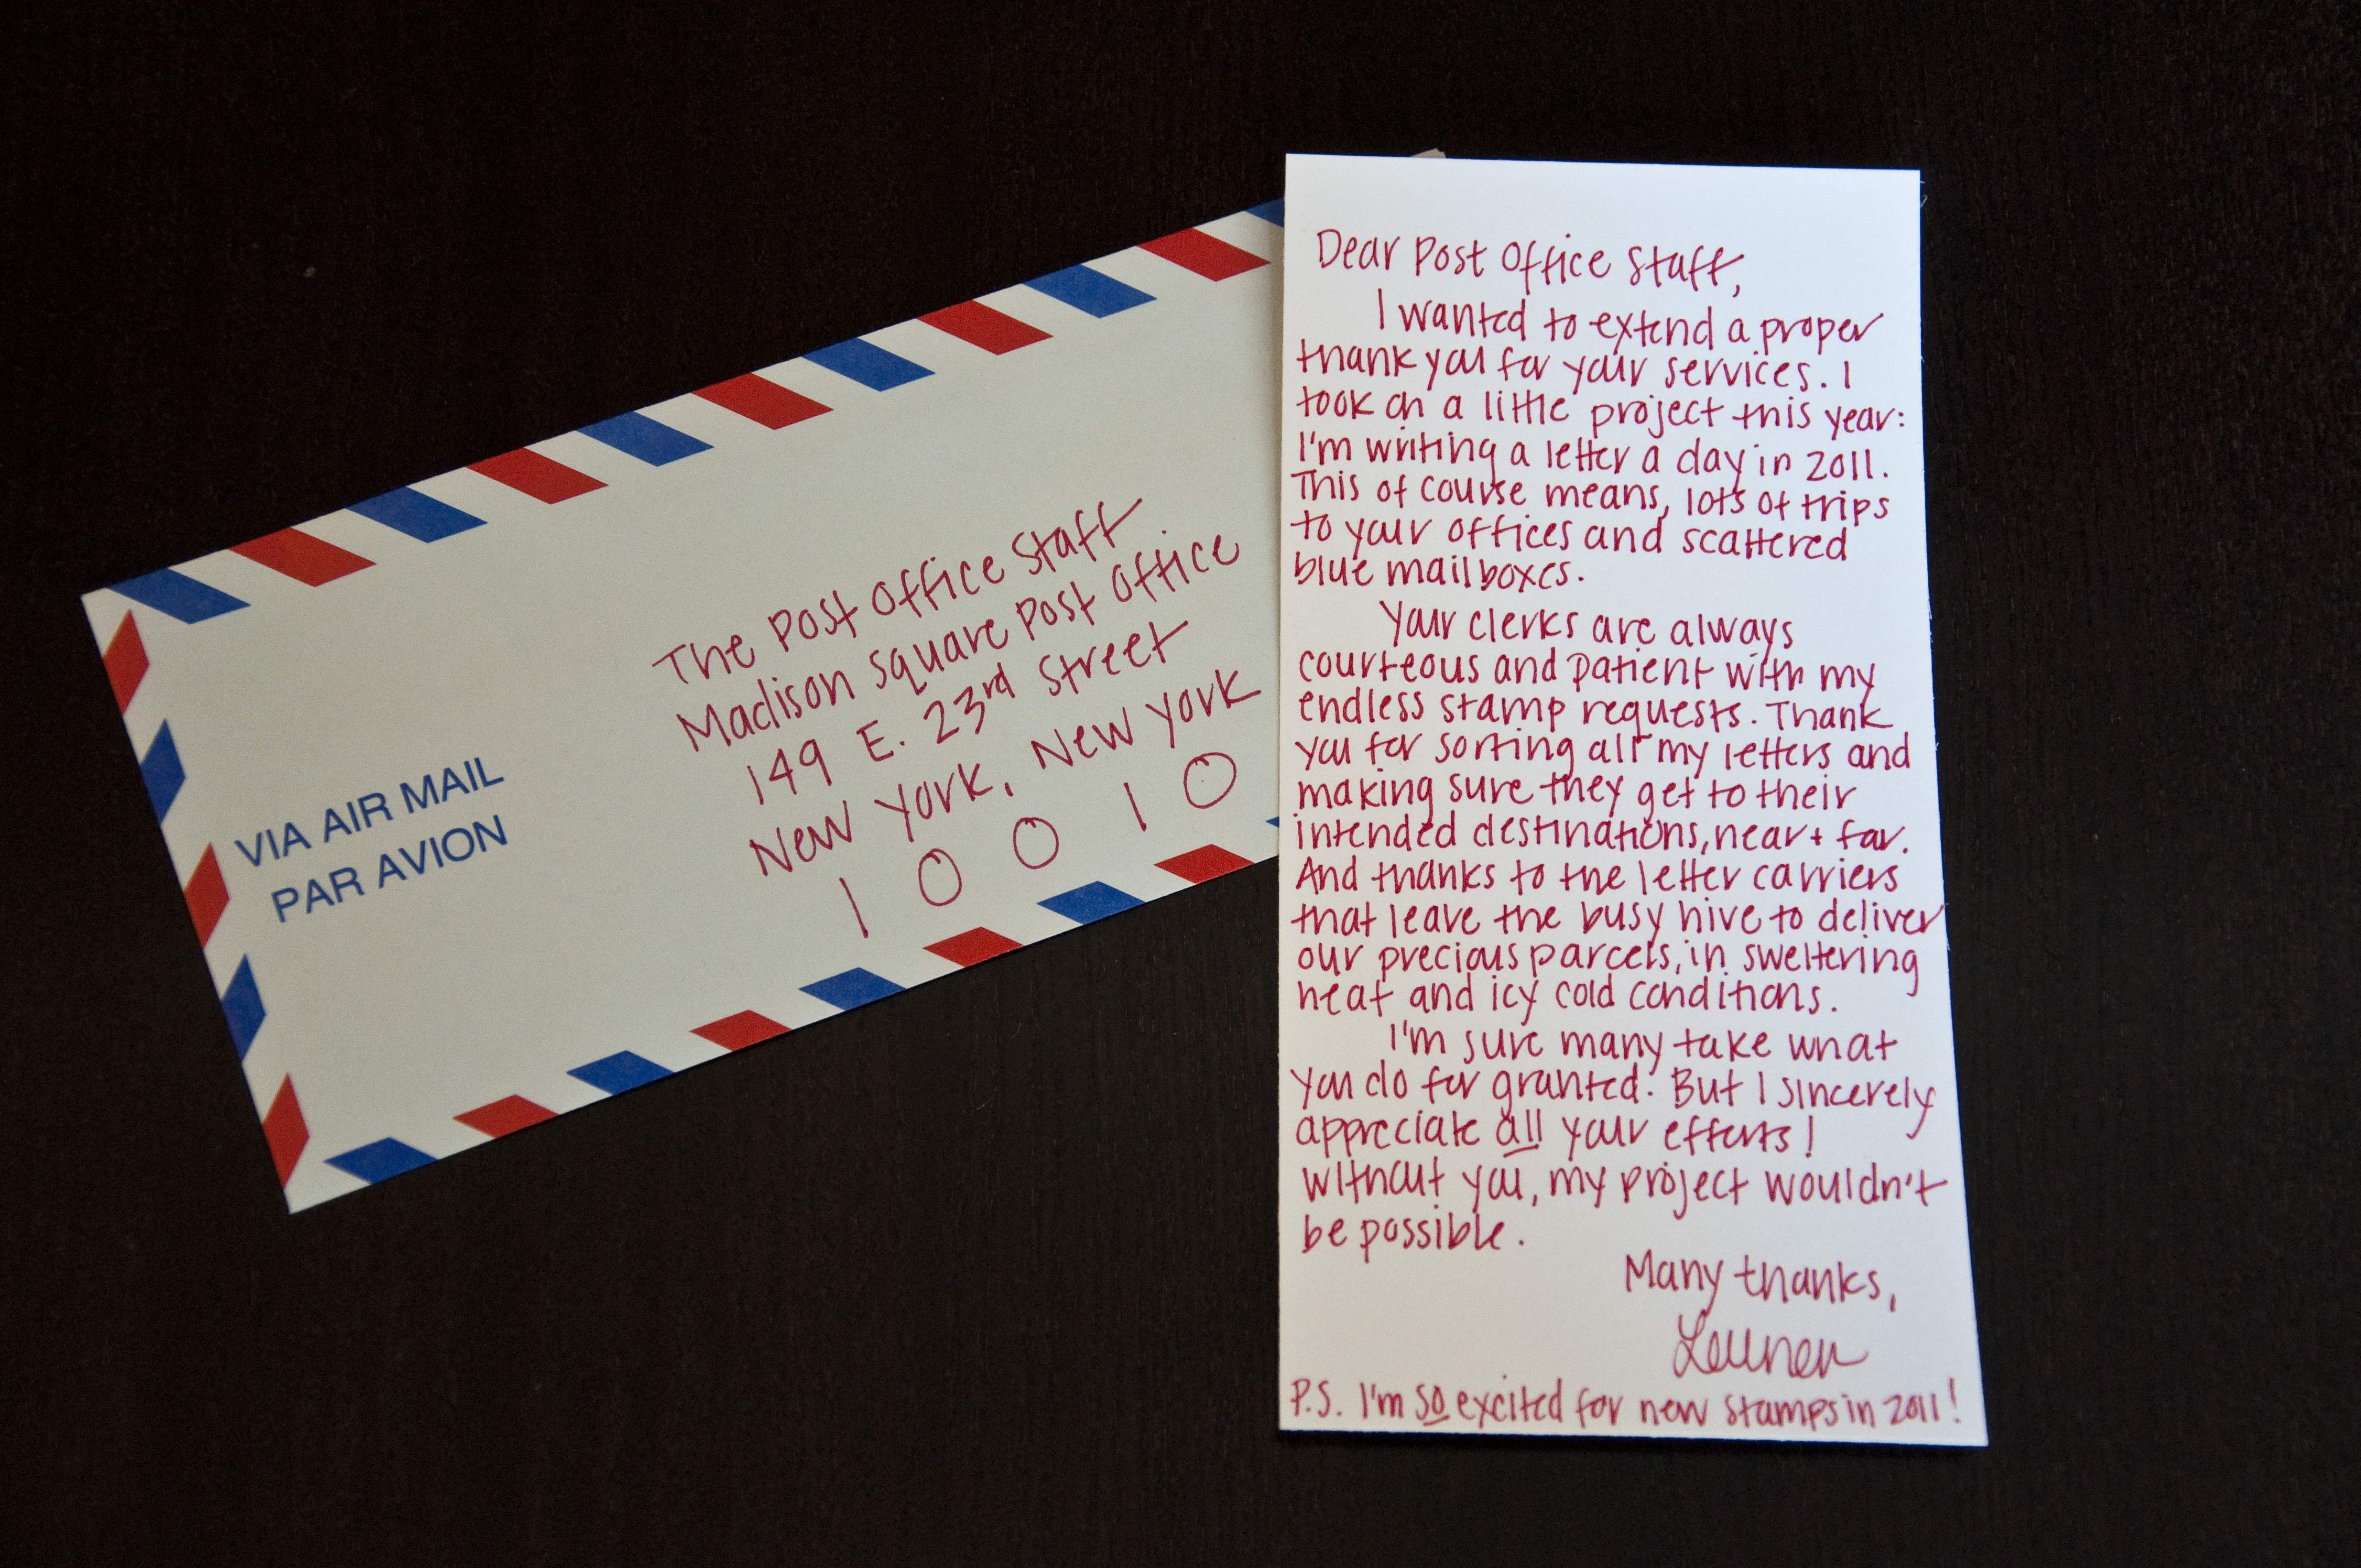 VIA AIR MAIL
PAR AVION
The Post Office Staff
Madison Square Post Office
149 E. 23rd Street
New York, New York
10010
Dear Post Office Staff,
I wanted to extend a proper
thank you for your services. I
took on a little project this year:
I'm writing a letter a day in 2011.
This of course means, lots of trips
to your offices and scattered
blue mailboxes.
Your clerks are always
courteous and patient with my
endless stamp requests. Thank
you for sorting all my letters and
making sure they get to their
intended destinations, near + far.
And thanks to the letter carriers
that leave the busy hive to deliver
our precious parcels, in sweltering
heat and icy cold conditions.
I'm sure many take what
you do for granted. But I sincerely
appreciate all your efforts!
Without you, my project wouldn't
be possible.
Many thanks,
P.S. I'm so excited for new stamps in 2011!